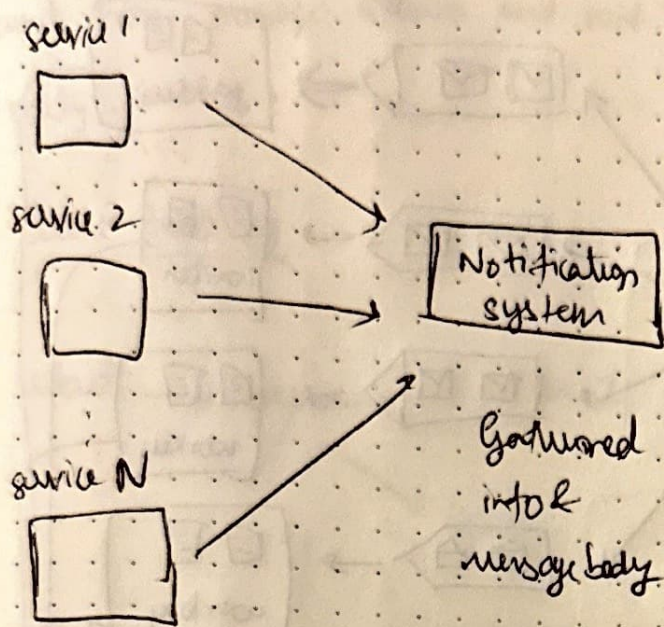 service 1
service 2
service N
Notification
system
Gathered
info &
message body